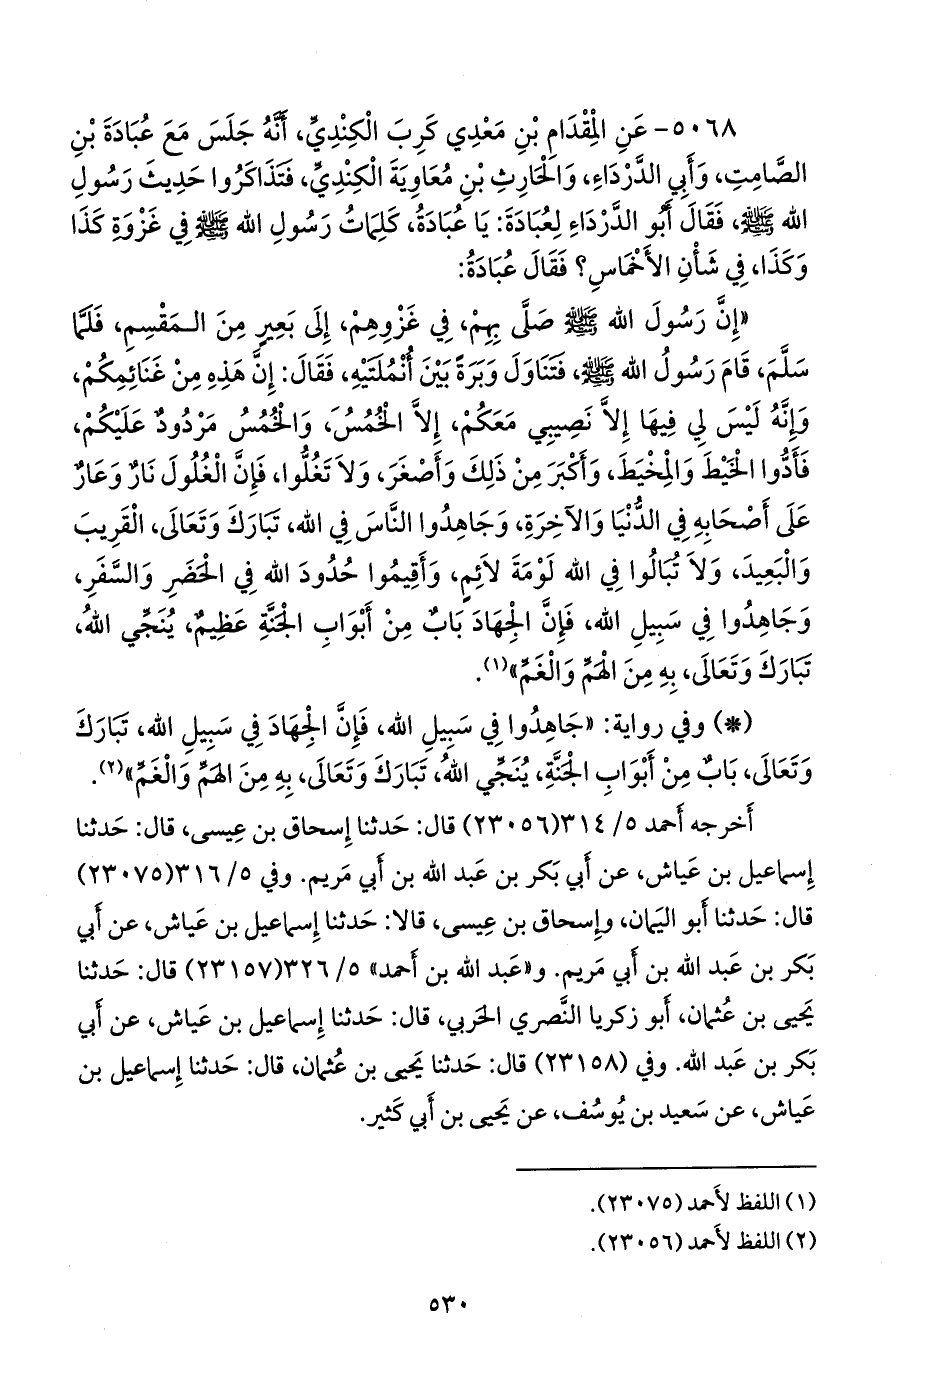 ٥٠٦٨- عَنِ الْمِقْدَامِ بْنِ مَعْدِي كَرِبَ الْكِنْدِيِّ، أَنَّهُ جَلَسَ مَعَ عُبَادَةَ بْنِ
الصَّامِتِ، وَأَبِي الدَّرْدَاءِ، وَالْحَارِثِ بْنِ مُعَاوِيَةَ الْكِنْدِيِّ، فَتَذَاكَرُوا حَدِيثَ رَسُولِ
الله ﷺ، فَقَالَ أَبُو الدَّرْدَاءِ لِعُبَادَةَ: يَا عُبَادَةُ، كَلِمَاتُ رَسُولِ الله ﷺ فِي غَزْوَةِ كَذَا
وَكَذَا، فِي شَأْنِ الأَخْمَاسِ؟ فَقَالَ عُبَادَةُ:
«إِنَّ رَسُولَ الله ﷺ صَلَّى بِهِمْ، فِي غَزْوِهِمْ، إِلَى بَعِيرٍ مِنَ الـمَقْسِمِ، فَلَمَّا
سَلَّمَ، قَامَ رَسُولُ الله ﷺ، فَتَنَاوَلَ وَبَرَةً بَيْنَ أُنْمُلَتَيْهِ، فَقَالَ: إِنَّ هَذِهِ مِنْ غَنَائِمِكُمْ،
وَإِنَّهُ لَيْسَ لِي فِيهَا إِلاَّ نَصِيبِي مَعَكُمْ، إِلاَّ الْخُمُسَ، وَالْخُمُسُ مَرْدُودٌ عَلَيْكُمْ،
فَأَدُّوا الْخَيْطَ وَالْمِخْيَطَ، وَأَكْبَرَ مِنْ ذَلِكَ وَأَصْغَرَ، وَلاَ تَغُلُّوا، فَإِنَّ الْغُلُولَ نَارٌ وَعَارٌ
عَلَى أَصْحَابِهِ فِي الدُّنْيَا وَالآخِرَةِ، وَجَاهِدُوا النَّاسَ فِي الله، تَبَارَكَ وَتَعَالَى، الْقَرِيبَ
وَالْبَعِيدَ، وَلاَ تُبَالُوا فِي الله لَوْمَةَ لاَئِمٍ، وَأَقِيمُوا حُدُودَ الله فِي الْحَضَرِ وَالسَّفَرِ،
وَجَاهِدُوا فِي سَبِيلِ الله، فَإِنَّ الْجِهَادَ بَابٌ مِنْ أَبْوَابِ الْجَنَّةِ عَظِيمٌ، يُنَجِّي اللهُ،
تَبَارَكَ وَتَعَالَى، بِهِ مِنَ الْهَمِّ وَالْغَمِّ»(١).
(*) وفي رواية: «جَاهِدُوا فِي سَبِيلِ الله، فَإِنَّ الْجِهَادَ فِي سَبِيلِ الله، تَبَارَكَ
وَتَعَالَى، بَابٌ مِنْ أَبْوَابِ الْجَنَّةِ، يُنَجِّي اللهُ، تَبَارَكَ وَتَعَالَى، بِهِ مِنَ الهَمِّ وَالْغَمِّ»(٢).
أَخرجه أَحمد ٥/ ٣١٤(٢٣٠٥٦) قال: حَدثنا إِسحاق بن عِيسى، قال: حَدثنا
إِسماعيل بن عَياش، عن أَبي بَكر بن عَبد الله بن أَبي مَريم. وفي ٥/ ٣١٦(٢٣٠٧٥)
قال: حَدثنا أَبو اليَمان، وإِسحاق بن عِيسى، قالا: حَدثنا إِسماعيل بن عَياش، عن أَبي
بَكر بن عَبد الله بن أَبي مَريم. و«عَبد الله بن أَحمد» ٥/ ٣٢٦(٢٣١٥٧) قال: حَدثنا
يَحيى بن عُثمان، أَبو زكريا النَّصري الحَربي، قال: حَدثنا إِسماعيل بن عَياش، عن أَبي
بَكر بن عَبد الله. وفي (٢٣١٥٨) قال: حَدثنا يَحيى بن عُثمان، قال: حَدثنا إِسماعيل بن
عَياش، عن سَعيد بن يُوسُف، عن يَحيى بن أَبي كَثير.
(١) اللفظ لأَحمد (٢٣٠٧٥).
(٢) اللفظ لأَحمد (٢٣٠٥٦).
٥٣٠